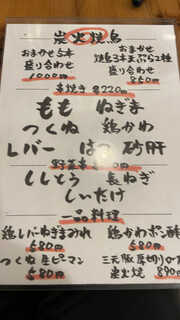 炭火焼鳥
おまかせ5本
盛り合わせ
1000円
おまかせ
焼鳥3本 天ぷら2種
盛り合わせ
850円
串焼き 各220円
もも ねぎま
つくね 鶏かわ
レバー はつ 砂肝
野菜串
ししとう 長ねぎ
しいたけ
一品料理
鶏レバーねぎまみれ
580円
鶏かわポン酢
580円
つくね 生ピーマン
580円
三元豚厚切り
炭火焼 890円